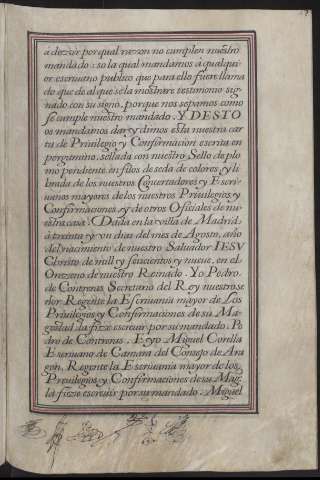 a dezir por qual razon no cumplen nuestro
mandado: so la qual mandamos á qualqui
er escriuano publico que para ello fuere llama
do que de al que se la mostrare testimonio sig
nado con su signo, porque nos sepamos como
se cumple nuestro mandado. Y DESTO
os mandamos dar y dimos esta nuestra car
ta de Priuilegio y Confirmacion escrita en
pergamino, sellada con nuestro Sello de plo
mo pendiente en filos de seda de colores, y li
brada de los nuestros Concertadores y Escri
uanos mayores de los nuestros Priuilegios y
Confirmaciones, y de otros Oficiales de nu
estra casa. Dada en la villa de Madrid
á treinta y vn dias del mes de Agosto, año
del nacimiento de nuestro Saluador IESV
Christo de mill y seiscientos y nueve, en el
Onzeno de nuestro Reinado. Yo Pedro
de Contreras, Secretario del Rey nuestro se
ñor, Regente la Escriuania mayor de Los
Priuilegios y Confirmaciones de su Ma
gestad la fize escreuir por su mandado. Pe
dro de Contreras. E yo Miguel Corella
Escriuano de Camara del Consejo de Ara
gon, Regente la Escriuania mayor de los
Preuilegios y Confirmaciones de su Mag.
la fize escreuir por su mandado. Miguel